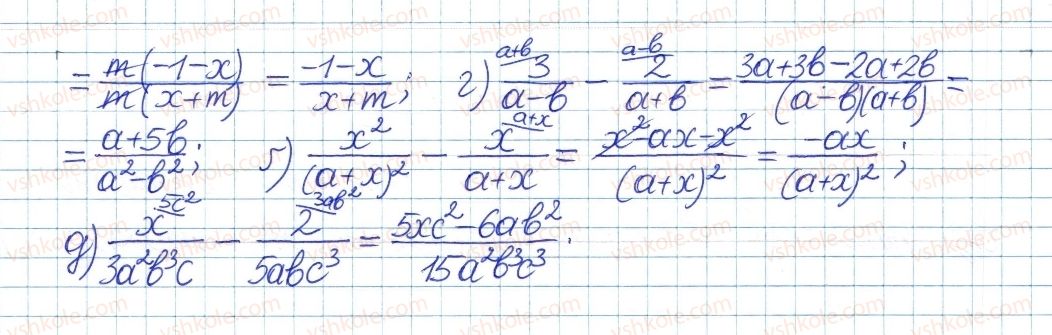 = m(-1-x)/m(x+m) = -1-x/x+m; г) 3^(a+b)/a-b - 2^(a-b)/a+b = 3a+3b-2a+2b/(a-b)(a+b) =
= a+5b/a²-b²; б) x²/(a+x)² - x^(a+x)/a+x = x²-ax-x²/(a+x)² = -ax/(a+x)²;
g) x^(5c²)/3a²b³c - 2^(3ab²)/5abc³ = 5xc²-6ab²/15a²b³c³.